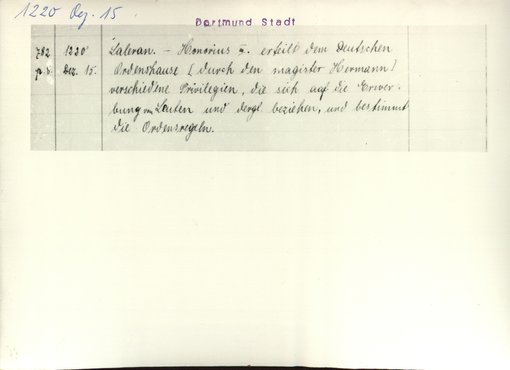 1220 Dez. 15.
Dortmund Stadt
782 1220 Lateran. – Honorius III. erteilt dem Deutschen
Dez. 15. Ordenshause [durch den magister Hermann]
verschiedene Privilegien, die sich auf die Erwer-
bung von Leuten und dergl. beziehen, und bestimmt
die Ordensregeln.